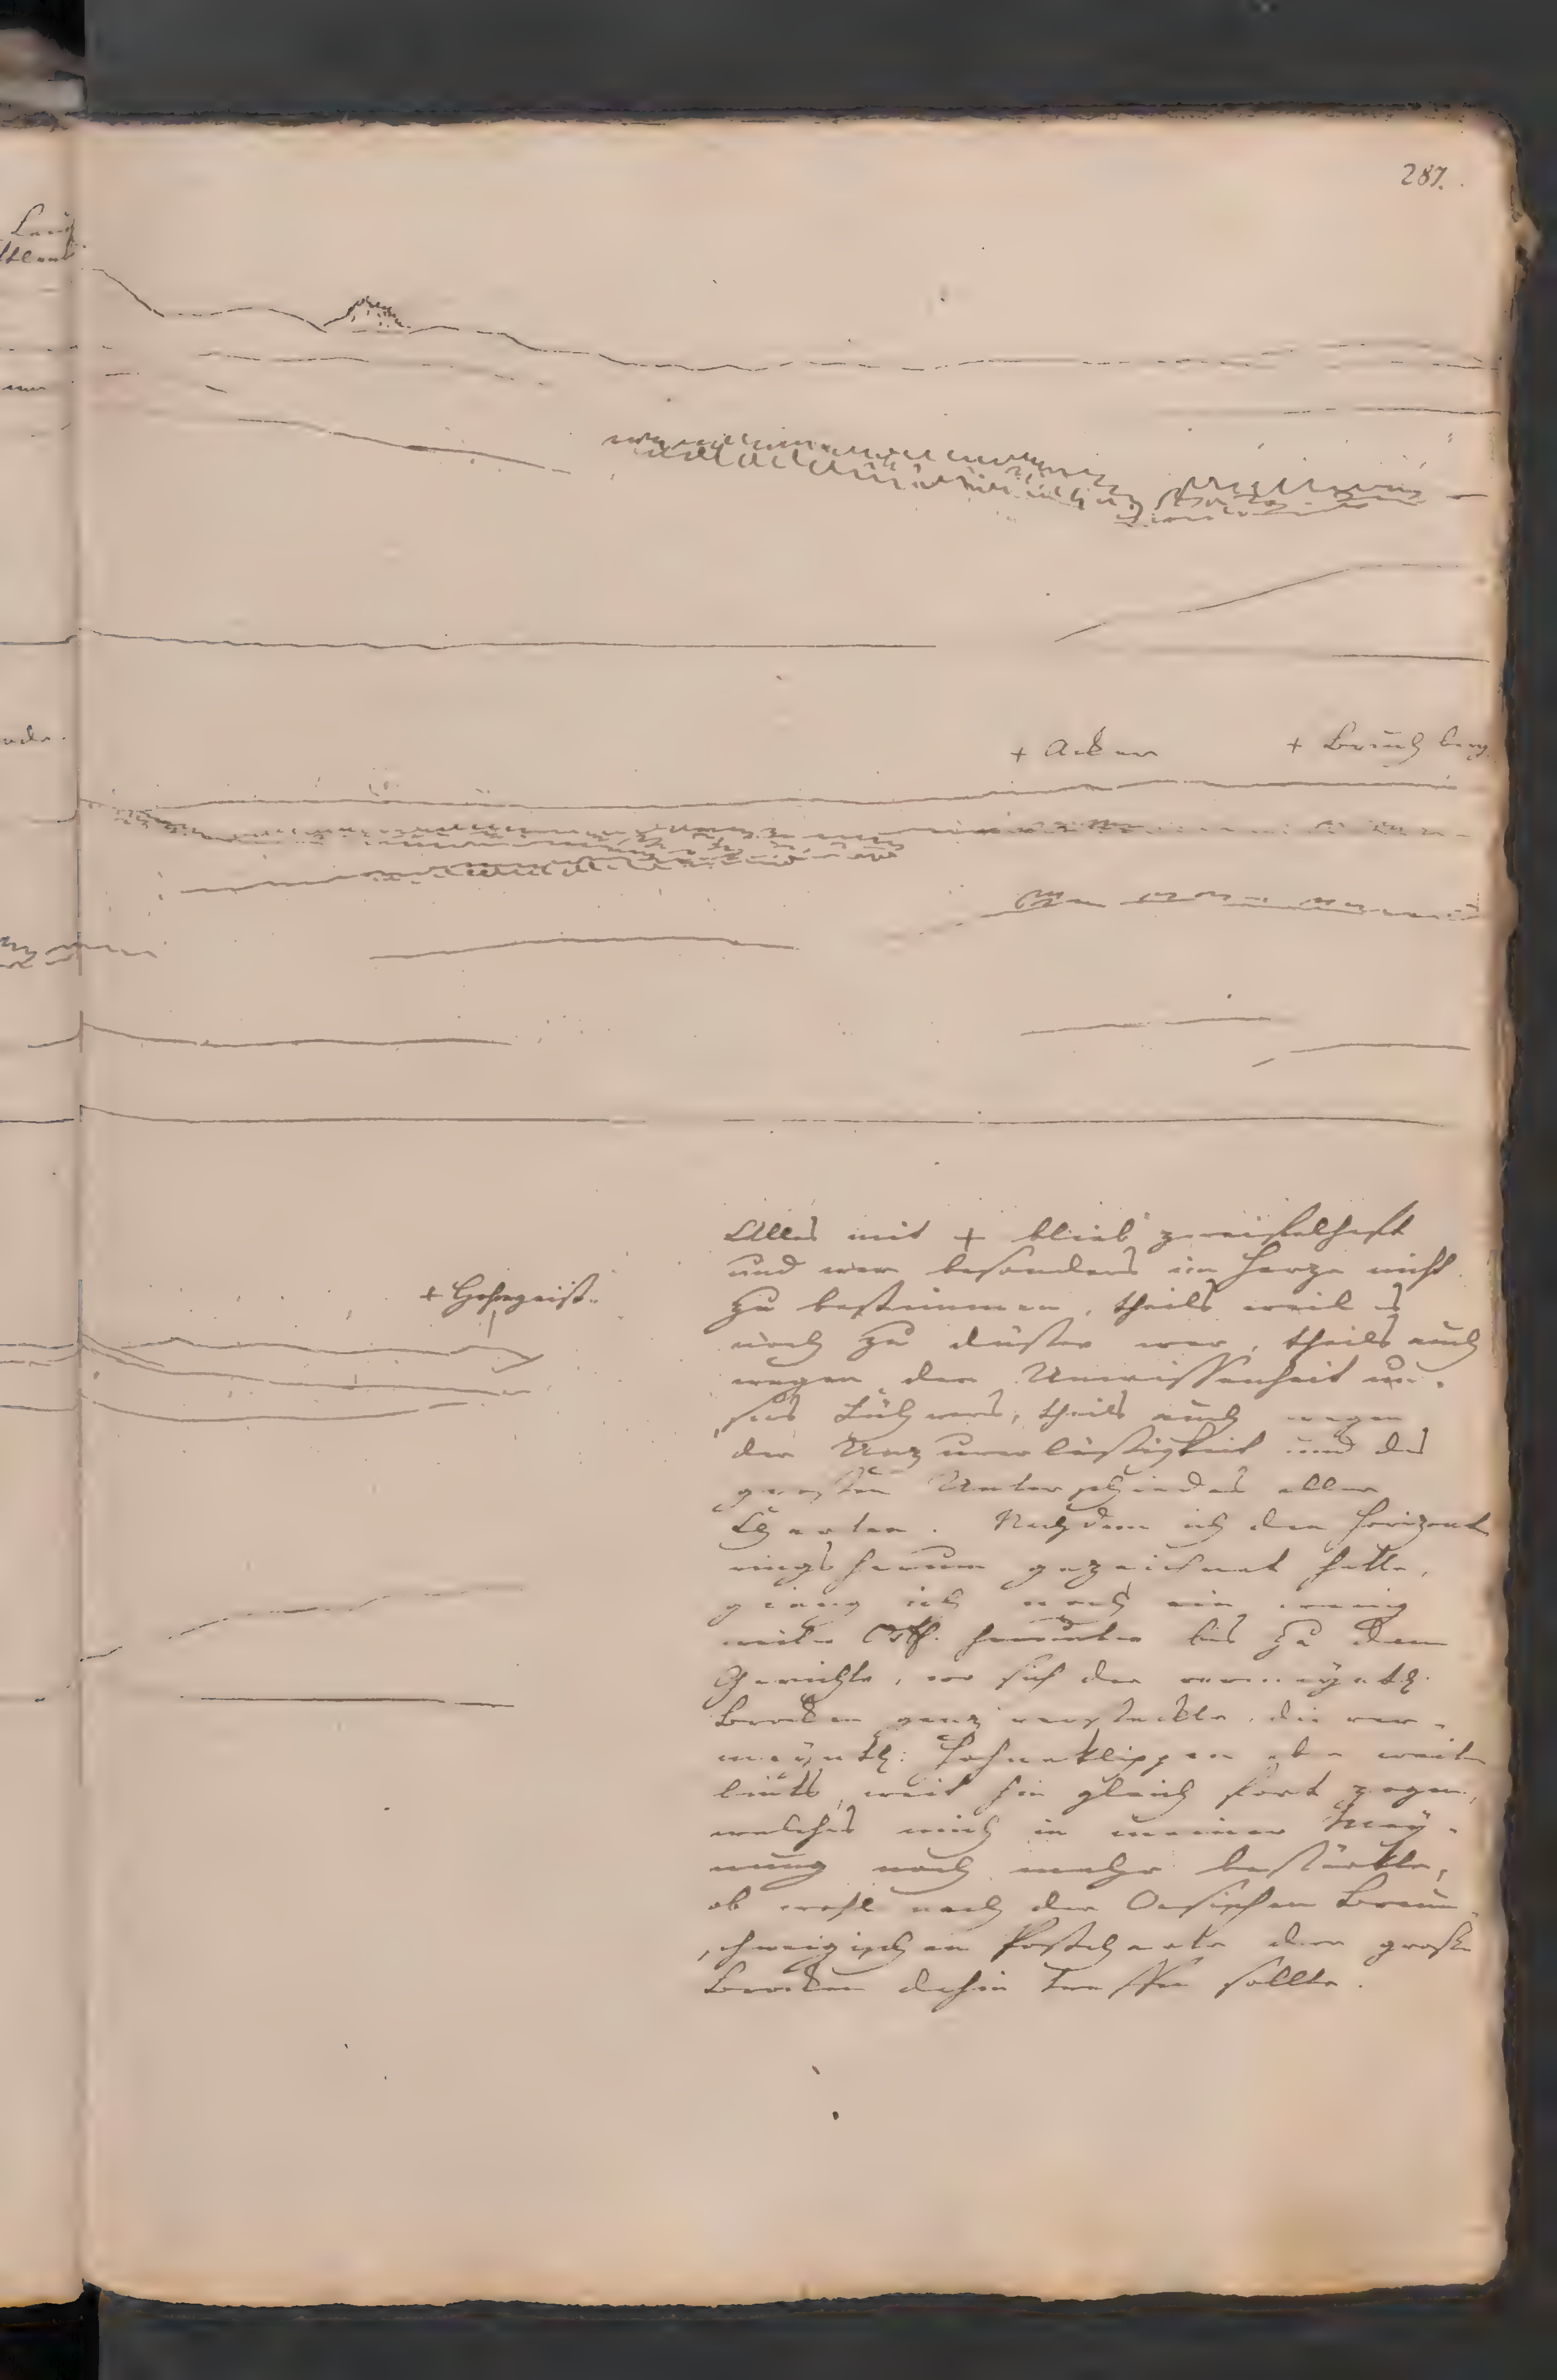 287.
+ Acker
+ Bruchberg
+ Hohegeiß
Alles mit + blieb zweifelhaft
und war besonders im Harze nicht
zu bestimmen, theils weil es
noch zu düster war, theils auch
wegen der Unwissenheit un-
sers Führers, theils auch wegen
der Unzuverläßigkeit und des
großen Unterschiedes aller
Charten. Nachdem ich den Horizont
rings herum gezeichnet hatte,
gieng ich noch ein wenig
weiter herunter bis zu dem
Gerichte, wo sich der vermeyntl.
Brocken ganz versteckte, die ver-
meyntl: Hohneklippen aber weiter
links, weit hin gleich fort zogen,
welches mich in meiner Mey-
nung noch mehr bestärkte,
ob wohl nach der Braun-
schweigischen Postcharte der große
Brocken dahin treffen sollte.